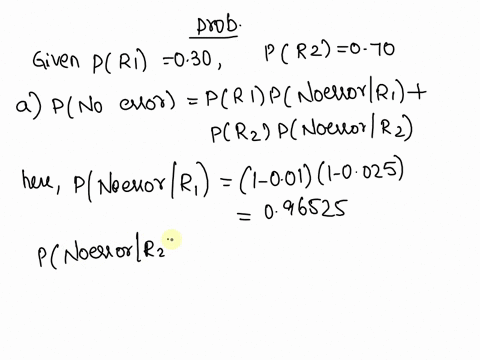 prob.
Given P(R1) = 0.30, P(R2) = 0.70
a) P(No error) = P(R1) P(Noerror/R1) +
P(R2) P(Noerror/R2)
here, P(Noerror/R1) = (1-0.01) (1-0.025)
= 0.96525
P(Noerror/R2